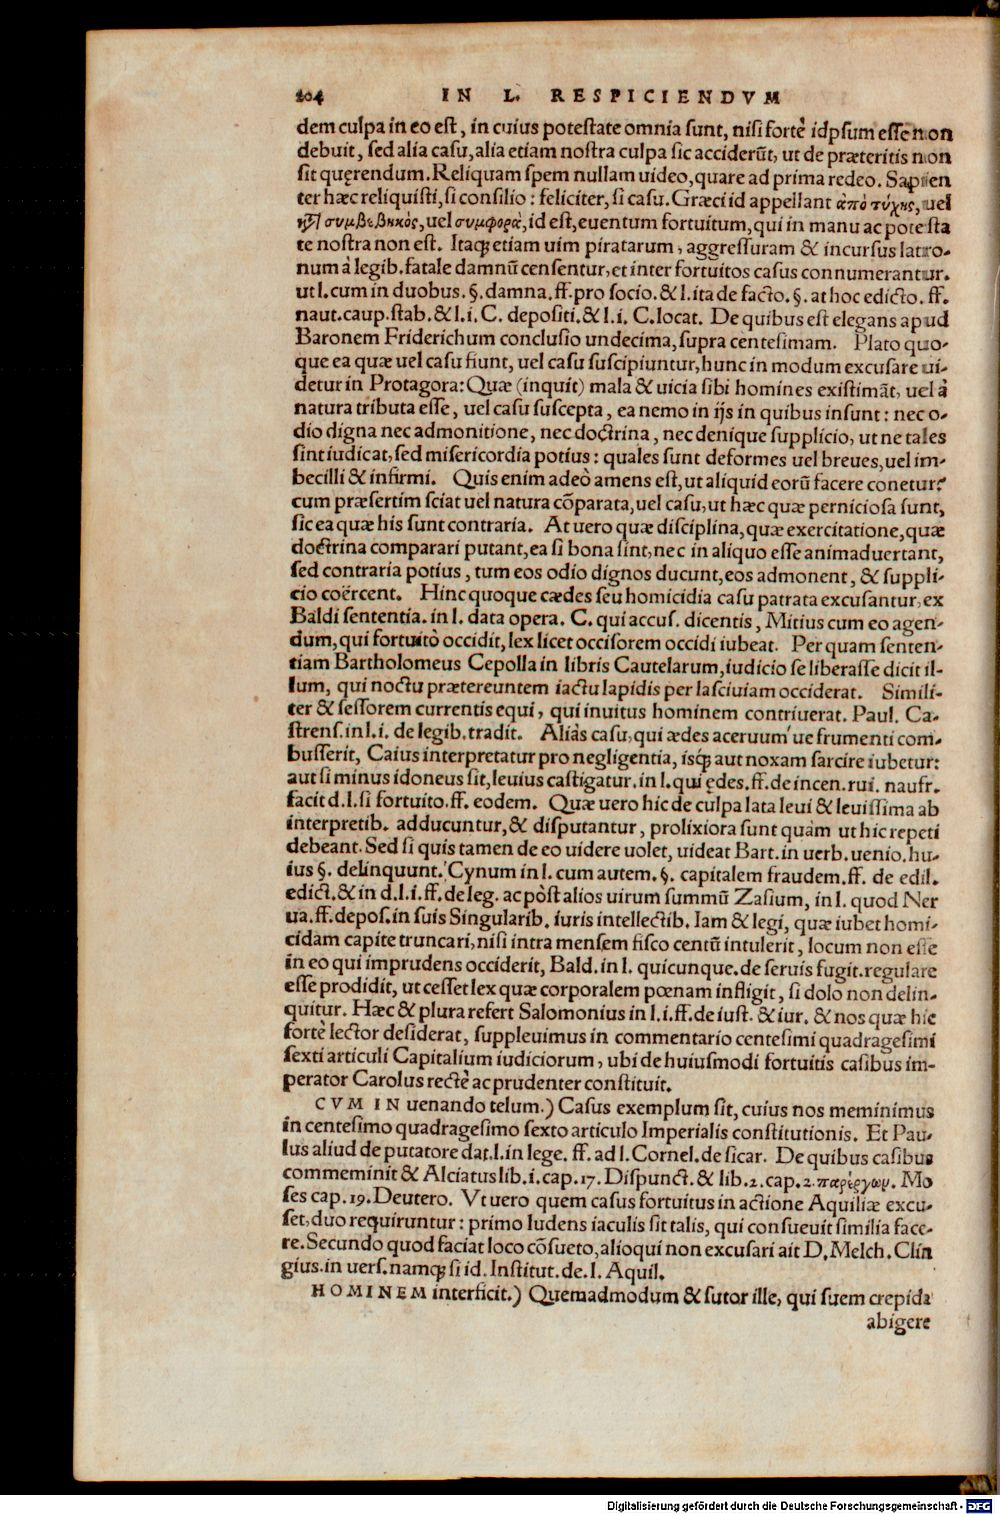 204 IN L. RESPICIENDVM
dem culpa in eo est, in cuius potestate omnia sunt, nisi fortè idpsum esse non
debuit, sed alia casu, alia etiam nostra culpa sic acciderũt, ut de præteritis non
sit quęrendum. Reliquam spem nullam uideo, quare ad prima redeo. Sapien
ter hæc reliquisti, si consilio: feliciter, si casu. Græci id appellant ἀπὸ τύχης, uel
κτ̃ συμβεβηκὸς, uel συμφορὰ, id est, euentum fortuitum, qui in manu ac potesta
te nostra non est. Itaqꝫ etiam uim piratarum, aggressuram & incursus latro-
num à legib. fatale damnũ censentur, et inter fortuitos casus connumerantur.
ut l. cum in duobus. §. damna. ff. pro socio. & l. ita de facto. §. at hoc edicto. ff.
naut. caup. stab. & l. i. C. depositi. & l. i. C. locat. De quibus est elegans apud
Baronem Friderichum conclusio undecima, supra centesimam. Plato quo-
que ea quæ uel casu fiunt, uel casu suscipiuntur, hunc in modum excusare ui-
detur in Protagora: Quæ (inquit) mala & uicia sibi homines existimãt, uel à
natura tributa esse, uel casu suscepta, ea nemo in ijs in quibus insunt: nec o-
dio digna nec admonitione, nec doctrina, nec denique supplicio, ut ne tales
sint iudicat, sed misericordia potius: quales sunt deformes uel breues, uel im-
becilli & infirmi. Quis enim adeò amens est, ut aliquid eorũ facere conetur?
cum præsertim sciat uel natura cõparata, uel casu, ut hæc quæ perniciosa sunt,
sic ea quæ his sunt contraria. At uero quæ disciplina, quæ exercitatione, quæ
doctrina comparari putant, ea si bona sint, nec in aliquo esse animaduertant,
sed contraria potius, tum eos odio dignos ducunt, eos admonent, & suppli-
cio coërcent. Hinc quoque cædes seu homicidia casu patrata excusantur, ex
Baldi sententia. in l. data opera. C. qui accus. dicentis, Mitius cum eo agen-
dum, qui fortuitò occidit, lex licet occisorem occidi iubeat. Per quam senten-
tiam Bartholomeus Cepolla in libris Cautelarum, iudicio se liberasse dicit il-
lum, qui noctu prætereuntem iactu lapidis per lasciuiam occiderat. Simili-
ter & sessorem currentis equi, qui inuitus hominem contriuerat. Paul. Ca-
strens. in l. i. de legib. tradit. Aliàs casu, qui ædes aceruum'ue frumenti com-
busserit, Caius interpretatur pro negligentia, isqꝫ aut noxam sarcire iubetur:
aut si minus idoneus sit, leuius castigatur. in l. qui ędes. ff. de incen. rui. naufr.
facit d. l. si fortuito. ff. eodem. Quæ uero hic de culpa lata leui & leuissima ab
interpretib. adducuntur, & disputantur, prolixiora sunt quàm ut hic repeti
debeant. Sed si quis tamen de eo uidere uolet, uideat Bart. in uerb. uenio. hu-
ius §. delinquunt. Cynum in l. cum autem. §. capitalem fraudem. ff. de edil.
edict. & in d. l. i. ff. de leg. ac pòst alios uirum summũ Zasium, in l. quod Ner
ua. ff. depos. in suis Singularib. iuris intellectib. Iam & legi, quæ iubet homi-
cidam capite truncari, nisi intra mensem fisco centũ intulerit, locum non esse
in eo qui imprudens occiderit, Bald. in l. quicunque. de seruis fugit. regulare
esse prodidit, ut cesset lex quæ corporalem pœnam infligit, si dolo non delin-
quitur. Hæc & plura refert Salomonius in l. i. ff. de iust. & iur. & nos quæ hic
fortè lector desiderat, suppleuimus in commentario centesimi quadragesimi
sexti articuli Capitalium iudiciorum, ubi de huiusmodi fortuitis casibus im-
perator Carolus rectè ac prudenter constituit.
CVM IN uenando telum.) Casus exemplum sit, cuius nos meminimus
in centesimo quadragesimo sexto articulo Imperialis constitutionis. Et Pau-
lus aliud de putatore dat. l. in lege. ff. ad l. Cornel. de sicar. De quibus casibus
commeminit & Alciatus lib. i. cap. 17. Dispunct. & lib. 2. cap. 2. παρέργων. Mo
ses cap. 19. Deutero. Vt uero quem casus fortuitus in actione Aquiliæ excu-
set, duo requiruntur: primo ludens iaculis sit talis, qui consueuit similia face-
re. Secundo quod faciat loco cõsueto, alioqui non excusari ait D. Melch. Clin
gius. in uers. namqꝫ si id. Institut. de. l. Aquil.
HOMINEM interficit.) Quemadmodum & sutor ille, qui suem crepida
abigere
Digitalisierung gefördert durch die Deutsche Forschungsgemeinschaft - DFG